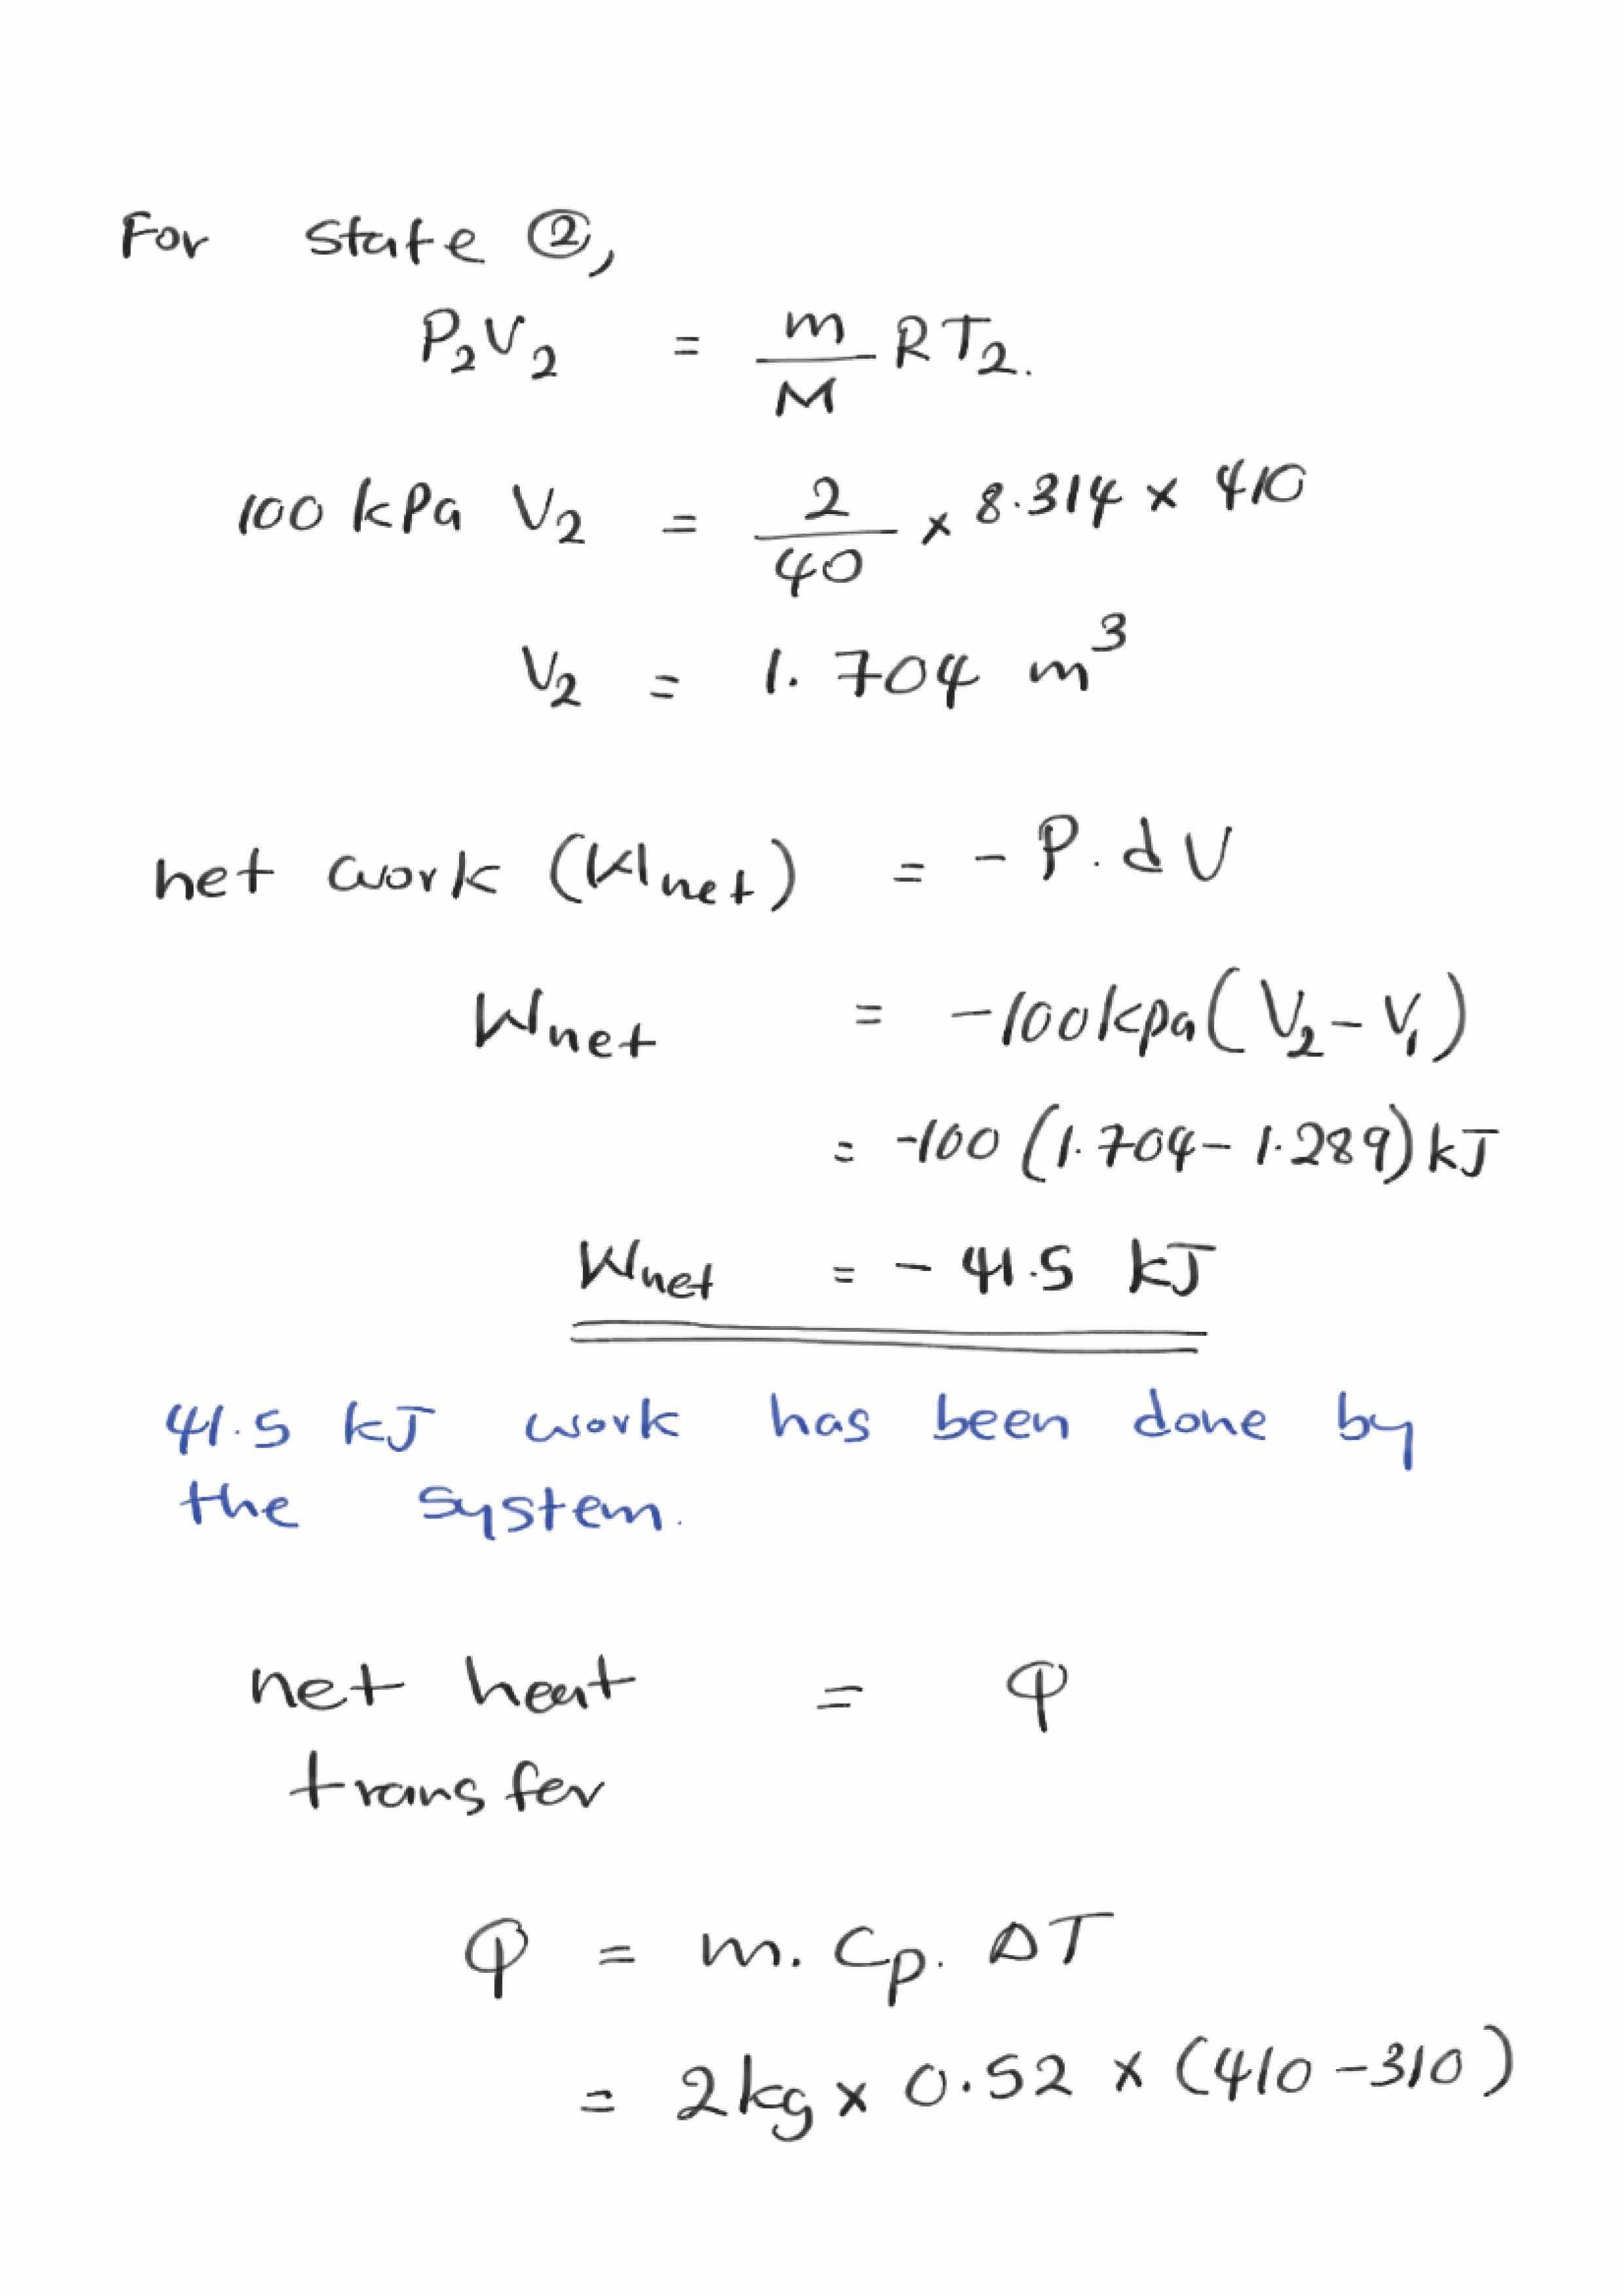 For state ②,
P₂V₂ = m/M RT₂.
100 kPa V₂ = 2/40 × 8.314 × 410
V₂ = 1.704 m³
net work (Wnet) = - P.dV
Wnet = -100kpa(V₂-V₁)
= -100 (1.704-1.289) kJ
Wnet = - 41.5 kJ
41.5 kJ work has been done by
the system.
net heat = Q
transfer
Q = m. Cp. ΔT
= 2kg × 0.52 × (410-310)